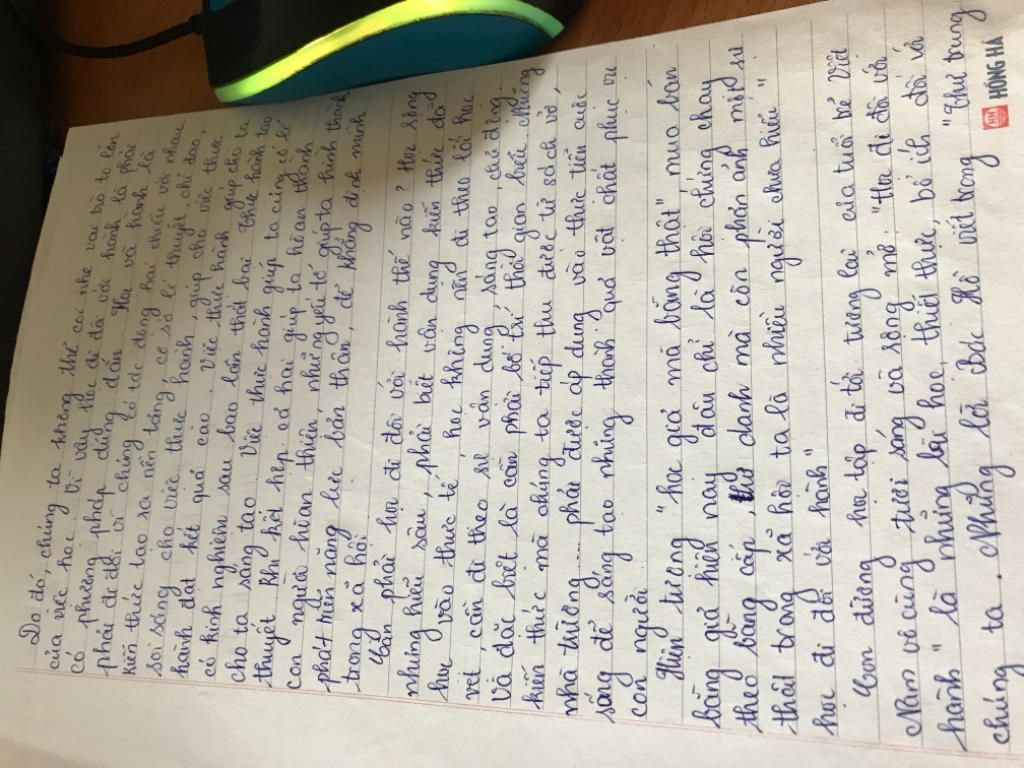 Do đó, chúng ta không thể coi nhẹ vai trò to lớn
của việc học. Vì vậy thế đi đôi với hành là phải
có phương pháp đúng đắn. Học và hành là
phải đi đôi vì chúng có tác động hai chiều với nhau.
kiến thức tạo ra nền tảng, cơ sở lí thuyết, chỉ đạo,
soi sáng cho việc thực hành, giúp cho việc thực
hành đạt kết quả cao. Việc thực hành giúp cho ta
có kinh nghiệm sau bao lần thất bại. Thực hành tạo
cho ta sáng tạo. Việc thực hành giúp ta củng cố lí
thuyết. Khi kết hợp cả hai giúp ta hoàn thành
con người hoàn thiện, những yếu tố giúp ta hình thành,
phát triển năng lực bản thân, để khẳng định mình
trong xã hội.
Cần phải học đi đôi với hành thế nào? Học rộng
nhưng hiểu sâu, phải biết vận dụng kiến thức đã
học vào thực tế, học không nên đi theo lối học
vẹt, cần đi theo sự vận dụng, sáng tạo, chủ động
Và đặc biệt là cần phải bố trí thời gian hiểu những
kiến thức mà chúng ta tiếp thu được từ sách vở,
nhà trường... phải được áp dụng vào thực tiễn cuộc
sống để sáng tạo những thành quả vật chất phục vụ
con người.
Hiện tượng "học giả mà bằng thật" mua bán
bằng giả hiện nay đâu chỉ là hồi chúng chạy
theo bằng cấp, danh mà còn phản ánh một sự
thật trong xã hội ta là nhiều người chưa hiểu "
học đi đôi với hành"
Con đường học tập đi tới tương lai của tuổi trẻ Việt
Nam vô cùng tươi sáng và rộng mở. "Học đi đôi với
hành" là những bài học, thiết thực, bổ ích đối với
chúng ta. Những lời Bác Hồ viết trong "Thư trung
HỒNG HÀ